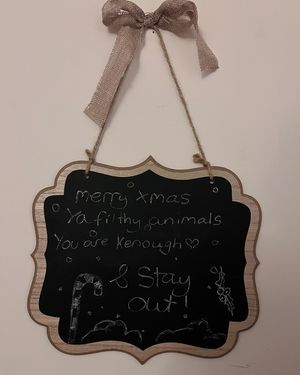 merry xmas
Ya filthy animals
You are Kenough♡
& Stay
Out!